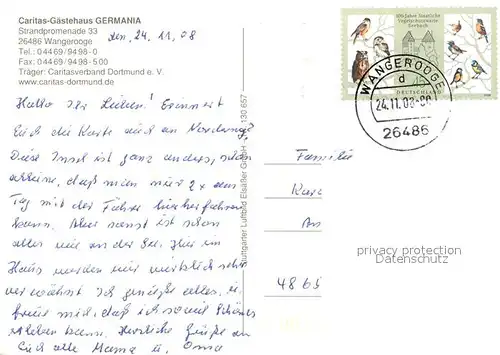 Caritas-Gästehaus GERMANIA
Strandpromenade 33
26486 Wangerooge
Tel.: 04469/9498-0
Fax: 04469/9498-500
Träger: Caritasverband Dortmund e. V.
www.caritas-dortmund.de
den, 24. 11. 08
Hallo Ihr Lieben! Erinnert
Euch die Karte auch an
Diese Insel ist ganz anders, schon
alleine, daß man nur 2 x am
Tag mit der Fähre hierherfahren
kann. Aber sonst ist schon
alles wie an der See. Hier im
Haus werden wir wirklich sehr
verwöhnt. Ich genieße alles, u.
freue mich, daß ich soviel Schönes
erleben kann. Herzliche Grüße an
Euch alle Mama u. Oma
Stuttgarter Luftbild Elsäßer GmbH
130 657
100 Jahre Staatliche
Vogelschutzwarte
Seebach
DEUTSCHLAND
WANGEROOGE
d
24.11.08
26486
Familie
4865
privacy protection
Datenschutz